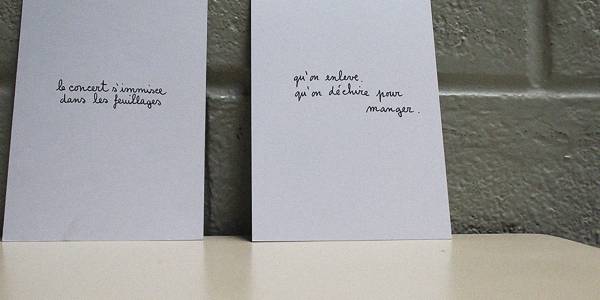 le concert s'immisce
dans les feuillages
qu'on enlève.
qu'on déchire pour
manger.